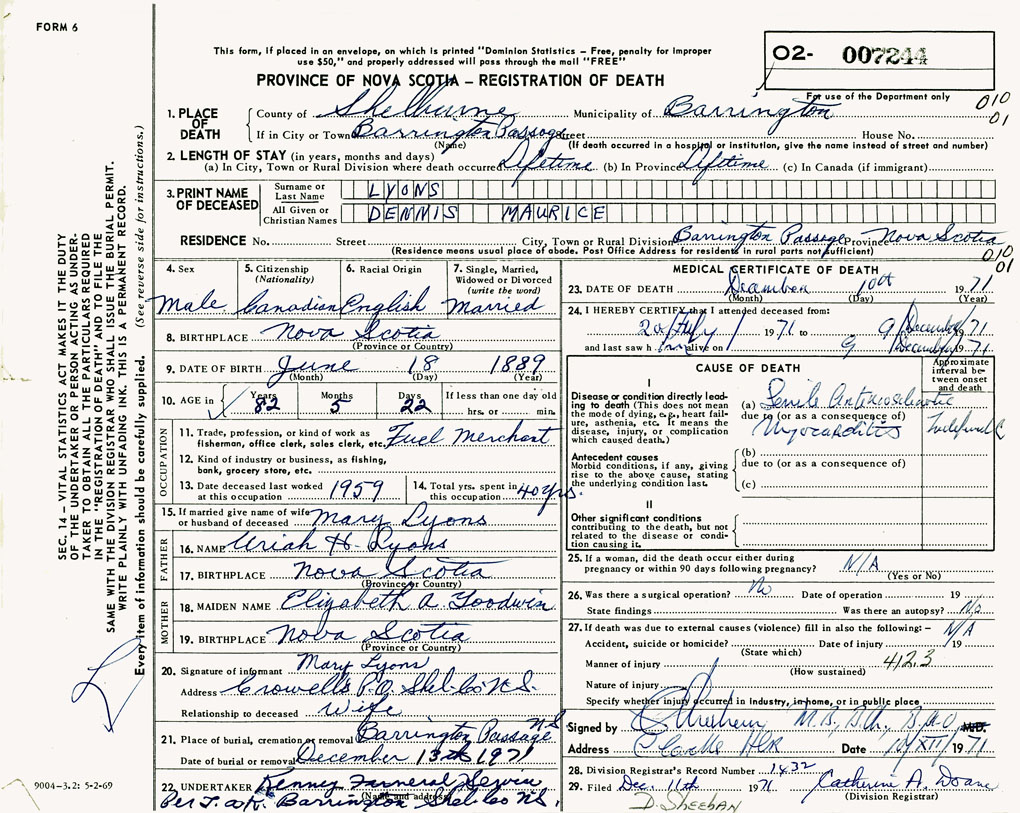 FORM 6
This form, if placed in an envelope, on which is printed "Dominion Statistics – Free, penalty for improper
use $50," and properly addressed will pass through the mail "FREE"
PROVINCE OF NOVA SCOTIA – REGISTRATION OF DEATH
O2- 007244
For use of the Department only
010
01
1. PLACE OF DEATH
County of Shelburne Municipality of Barrington
If in City or Town Barrington Passage Street House No.
(Name) (If death occurred in a hospital or institution, give the name instead of street and number)
2. LENGTH OF STAY (in years, months and days)
(a) In City, Town or Rural Division where death occurred Lifetime (b) In Province Lifetime (c) In Canada (if immigrant)
3. PRINT NAME OF DECEASED
Surname or Last Name LYONS
All Given or Christian Names DENNIS MAURICE
RESIDENCE No. Street City, Town or Rural Division Barrington Passage Province Nova Scotia
(Residence means usual place of abode. Post Office Address for residents in rural parts not sufficient)
010
01
4. Sex Male
5. Citizenship (Nationality) Canadian
6. Racial Origin English
7. Single, Married, Widowed or Divorced (write the word) Married
8. BIRTHPLACE Nova Scotia
(Province or Country)
9. DATE OF BIRTH June 18 1889
(Month) (Day) (Year)
10. AGE in Years 82 Months 5 Days 22 If less than one day old
hrs. or min.
OCCUPATION
11. Trade, profession, or kind of work as fisherman, office clerk, sales clerk, etc. Fuel Merchant
12. Kind of industry or business, as fishing, bank, grocery store, etc.
13. Date deceased last worked at this occupation 1959
14. Total yrs. spent in this occupation 40 yrs.
15. If married give name of wife or husband of deceased Mary Lyons
FATHER
16. NAME Uriah H. Lyons
17. BIRTHPLACE Nova Scotia
(Province or Country)
MOTHER
18. MAIDEN NAME Elizabeth A. Goodwin
19. BIRTHPLACE Nova Scotia
(Province or Country)
20. Signature of informant Mary Lyons
Address Crowells P.O. Shel. Co. N.S.
Relationship to deceased Wife
21. Place of burial, cremation or removal Barrington Passage N.S.
Date of burial or removal December 13th 1971
22. UNDERTAKER Kenney Funeral Service
(Name and address)
Barrington Shel. Co. N.S.
MEDICAL CERTIFICATE OF DEATH
23. DATE OF DEATH December 10th 1971
(Month) (Day) (Year)
24. I HEREBY CERTIFY that I attended deceased from:
20/July/ 1971 to 9/December/1971
and last saw him alive on 9/December/1971
CAUSE OF DEATH
Approximate interval between onset and death
I
Disease or condition directly leading to death (This does not mean the mode of dying, e.g., heart failure, asthenia, etc. It means the disease, injury, or complication which caused death.)
(a) Senile Arteriosclerotic
due to (or as a consequence of)
Myocarditis
Antecedent causes
Morbid conditions, if any, giving rise to the above cause, stating the underlying condition last.
(b)
due to (or as a consequence of)
(c)
II
Other significant conditions contributing to the death, but not related to the disease or condition causing it.
25. If a woman, did the death occur either during pregnancy or within 90 days following pregnancy? N/A
(Yes or No)
26. Was there a surgical operation? No Date of operation 19
State findings Was there an autopsy? No
27. If death was due to external causes (violence) fill in also the following:– N/A
Accident, suicide or homicide? Date of injury 19
(State which)
Manner of injury 412.3
(How sustained)
Nature of injury
Specify whether injury occurred in industry, in home, or in public place
Signed by M.B., B.Ch., B.A.O. M.D.
Address Date 10/XII/1971
28. Division Registrar's Record Number 1432
29. Filed Dec. 11th 1971 Catherine A. Doane
(Division Registrar)
D. Sheehan
SEC. 14 – VITAL STATISTICS ACT MAKES IT THE DUTY
OF THE UNDERTAKER OR PERSON ACTING AS UNDER-
TAKER TO OBTAIN ALL THE PARTICULARS REQUIRED
IN THE "REGISTRATION OF DEATH" AND TO FILE THE
SAME WITH THE DIVISION REGISTRAR WHO SHALL ISSUE THE BURIAL PERMIT.
WRITE PLAINLY WITH UNFADING INK. THIS IS A PERMANENT RECORD.
Every item of information should be carefully supplied. (See reverse side for instructions.)
9004-3.2: 5-2-69